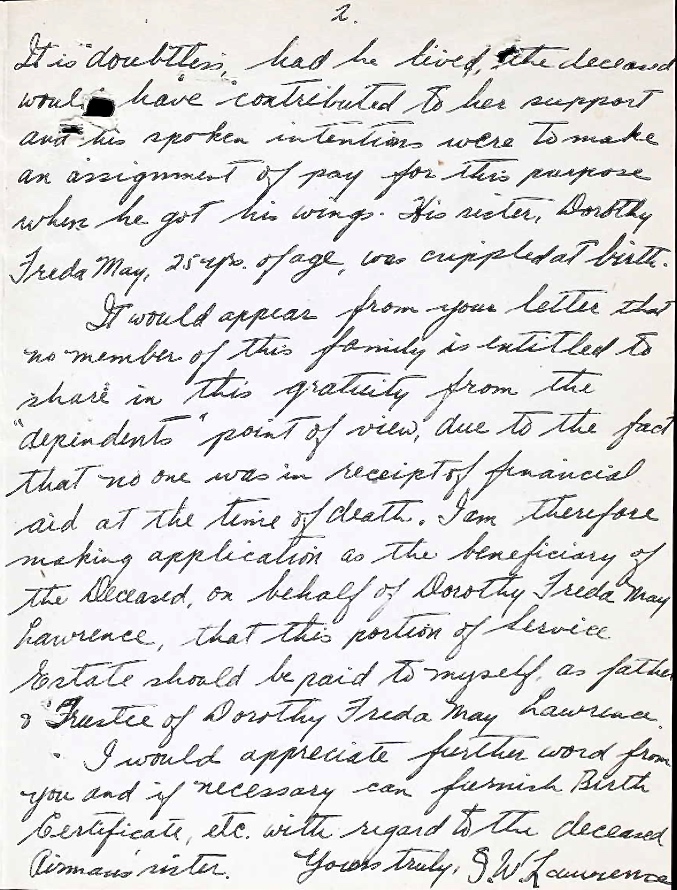 2.
It is doubtless, had he lived, the deceased
would have contributed to her support
and his spoken intentions were to make
an assignment of pay for this purpose
when he got his wings. His sister, Dorothy
Freda May, 25 yrs. of age, was crippled at birth.
It would appear from your letter that
no member of this family is entitled to
share in this gratuity from the
"dependents" point of view, due to the fact
that no one was in receipt of financial
aid at the time of death. I am therefore
making application as the beneficiary of
the Deceased, on behalf of Dorothy Freda May
Lawrence, that this portion of Service
Estate should be paid to myself, as father
& Trustee of Dorothy Freda May Lawrence.
I would appreciate further word from
you and if necessary can furnish Birth
Certificate, etc. with regard to the deceased
Airman's sister. Yours truly, S.W. Lawrence